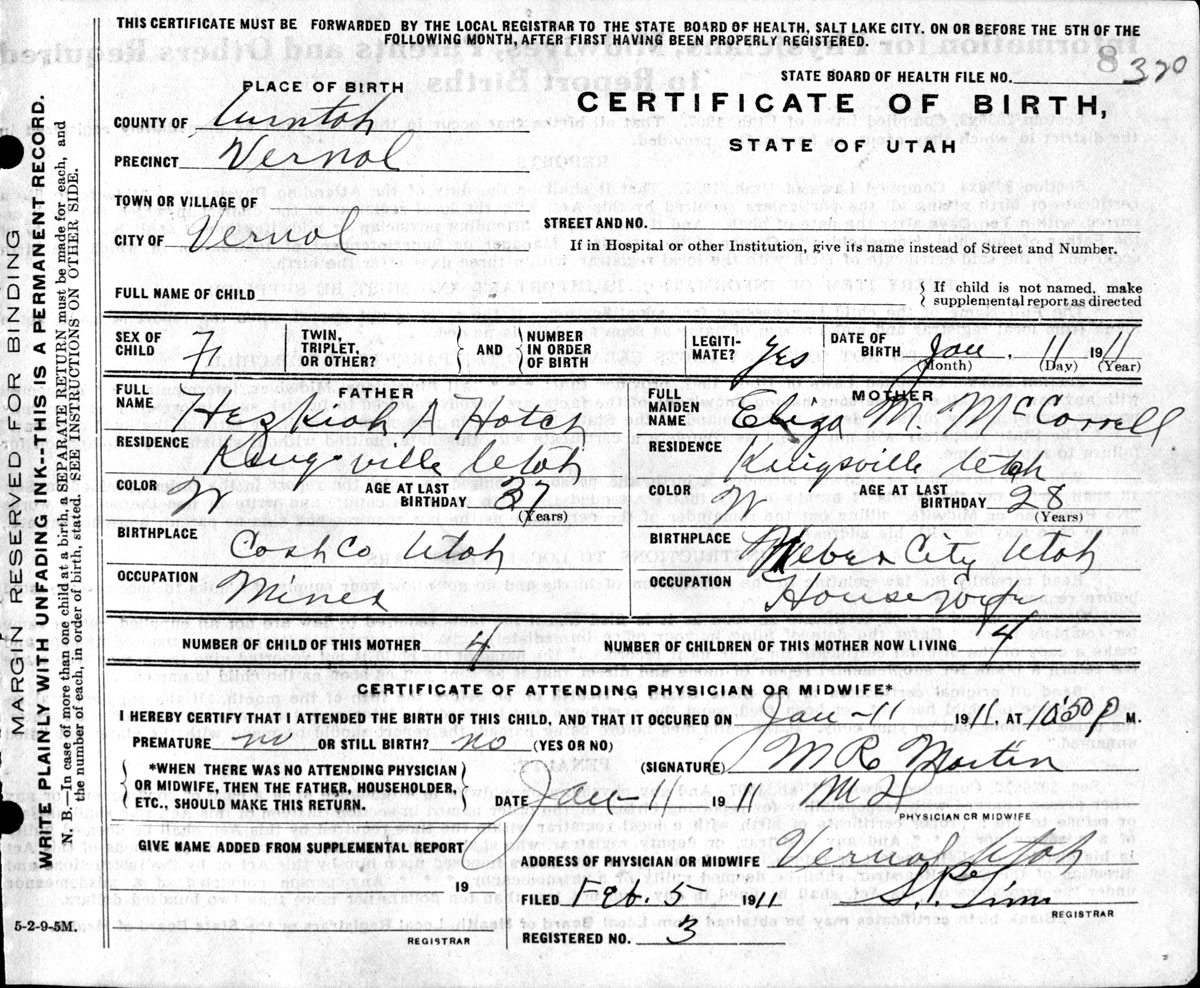 THIS CERTIFICATE MUST BE FORWARDED BY THE LOCAL REGISTRAR TO THE STATE BOARD OF HEALTH, SALT LAKE CITY. ON OR BEFORE THE 5TH OF THE
FOLLOWING MONTH, AFTER FIRST HAVING BEEN PROPERLY REGISTERED.
STATE BOARD OF HEALTH FILE NO. 8 320
PLACE OF BIRTH
CERTIFICATE OF BIRTH,
STATE OF UTAH
COUNTY OF
PRECINCT Vernal
TOWN OR VILLAGE OF
STREET AND NO.
CITY OF Vernal
If in Hospital or other Institution, give its name instead of Street and Number.
FULL NAME OF CHILD { If child is not named, make
supplemental report as directed
SEX OF CHILD F TWIN, TRIPLET, OR OTHER? } AND { NUMBER IN ORDER OF BIRTH LEGITI- MATE? Yes DATE OF BIRTH Jan. 11 1911
(Month) (Day) (Year)
FULL NAME FATHER FULL MAIDEN NAME MOTHER
Hatch Eliza M. McCarrell
RESIDENCE Kingsville Utah RESIDENCE Kingsville Utah
COLOR W AGE AT LAST BIRTHDAY 37 (Years) COLOR W AGE AT LAST BIRTHDAY 28 (Years)
BIRTHPLACE Cash Co Utah BIRTHPLACE City Utah
OCCUPATION Miner OCCUPATION House Wife
NUMBER OF CHILD OF THIS MOTHER 4 NUMBER OF CHILDREN OF THIS MOTHER NOW LIVING 4
CERTIFICATE OF ATTENDING PHYSICIAN OR MIDWIFE*
I HEREBY CERTIFY THAT I ATTENDED THE BIRTH OF THIS CHILD, AND THAT IT OCCURED ON Jan-11 1911, AT 10:50 P M.
PREMATURE no OR STILL BIRTH? no (YES OR NO)
{ *WHEN THERE WAS NO ATTENDING PHYSICIAN
OR MIDWIFE, THEN THE FATHER, HOUSEHOLDER,
ETC., SHOULD MAKE THIS RETURN. }
(SIGNATURE) Martin
DATE Jan-11 1911
PHYSICIAN OR MIDWIFE
GIVE NAME ADDED FROM SUPPLEMENTAL REPORT
19
REGISTRAR
ADDRESS OF PHYSICIAN OR MIDWIFE Vernal Utah
FILED Feb. 5 1911
REGISTRAR
REGISTERED NO. 3
MARGIN RESERVED FOR BINDING
WRITE PLAINLY WITH UNFADING INK--THIS IS A PERMANENT RECORD.
N. B.—In case of more than one child at a birth, a SEPARATE RETURN must be made for each, and
the number of each, in order of birth, stated. SEE INSTRUCTIONS ON OTHER SIDE.
5-2-9-5M.